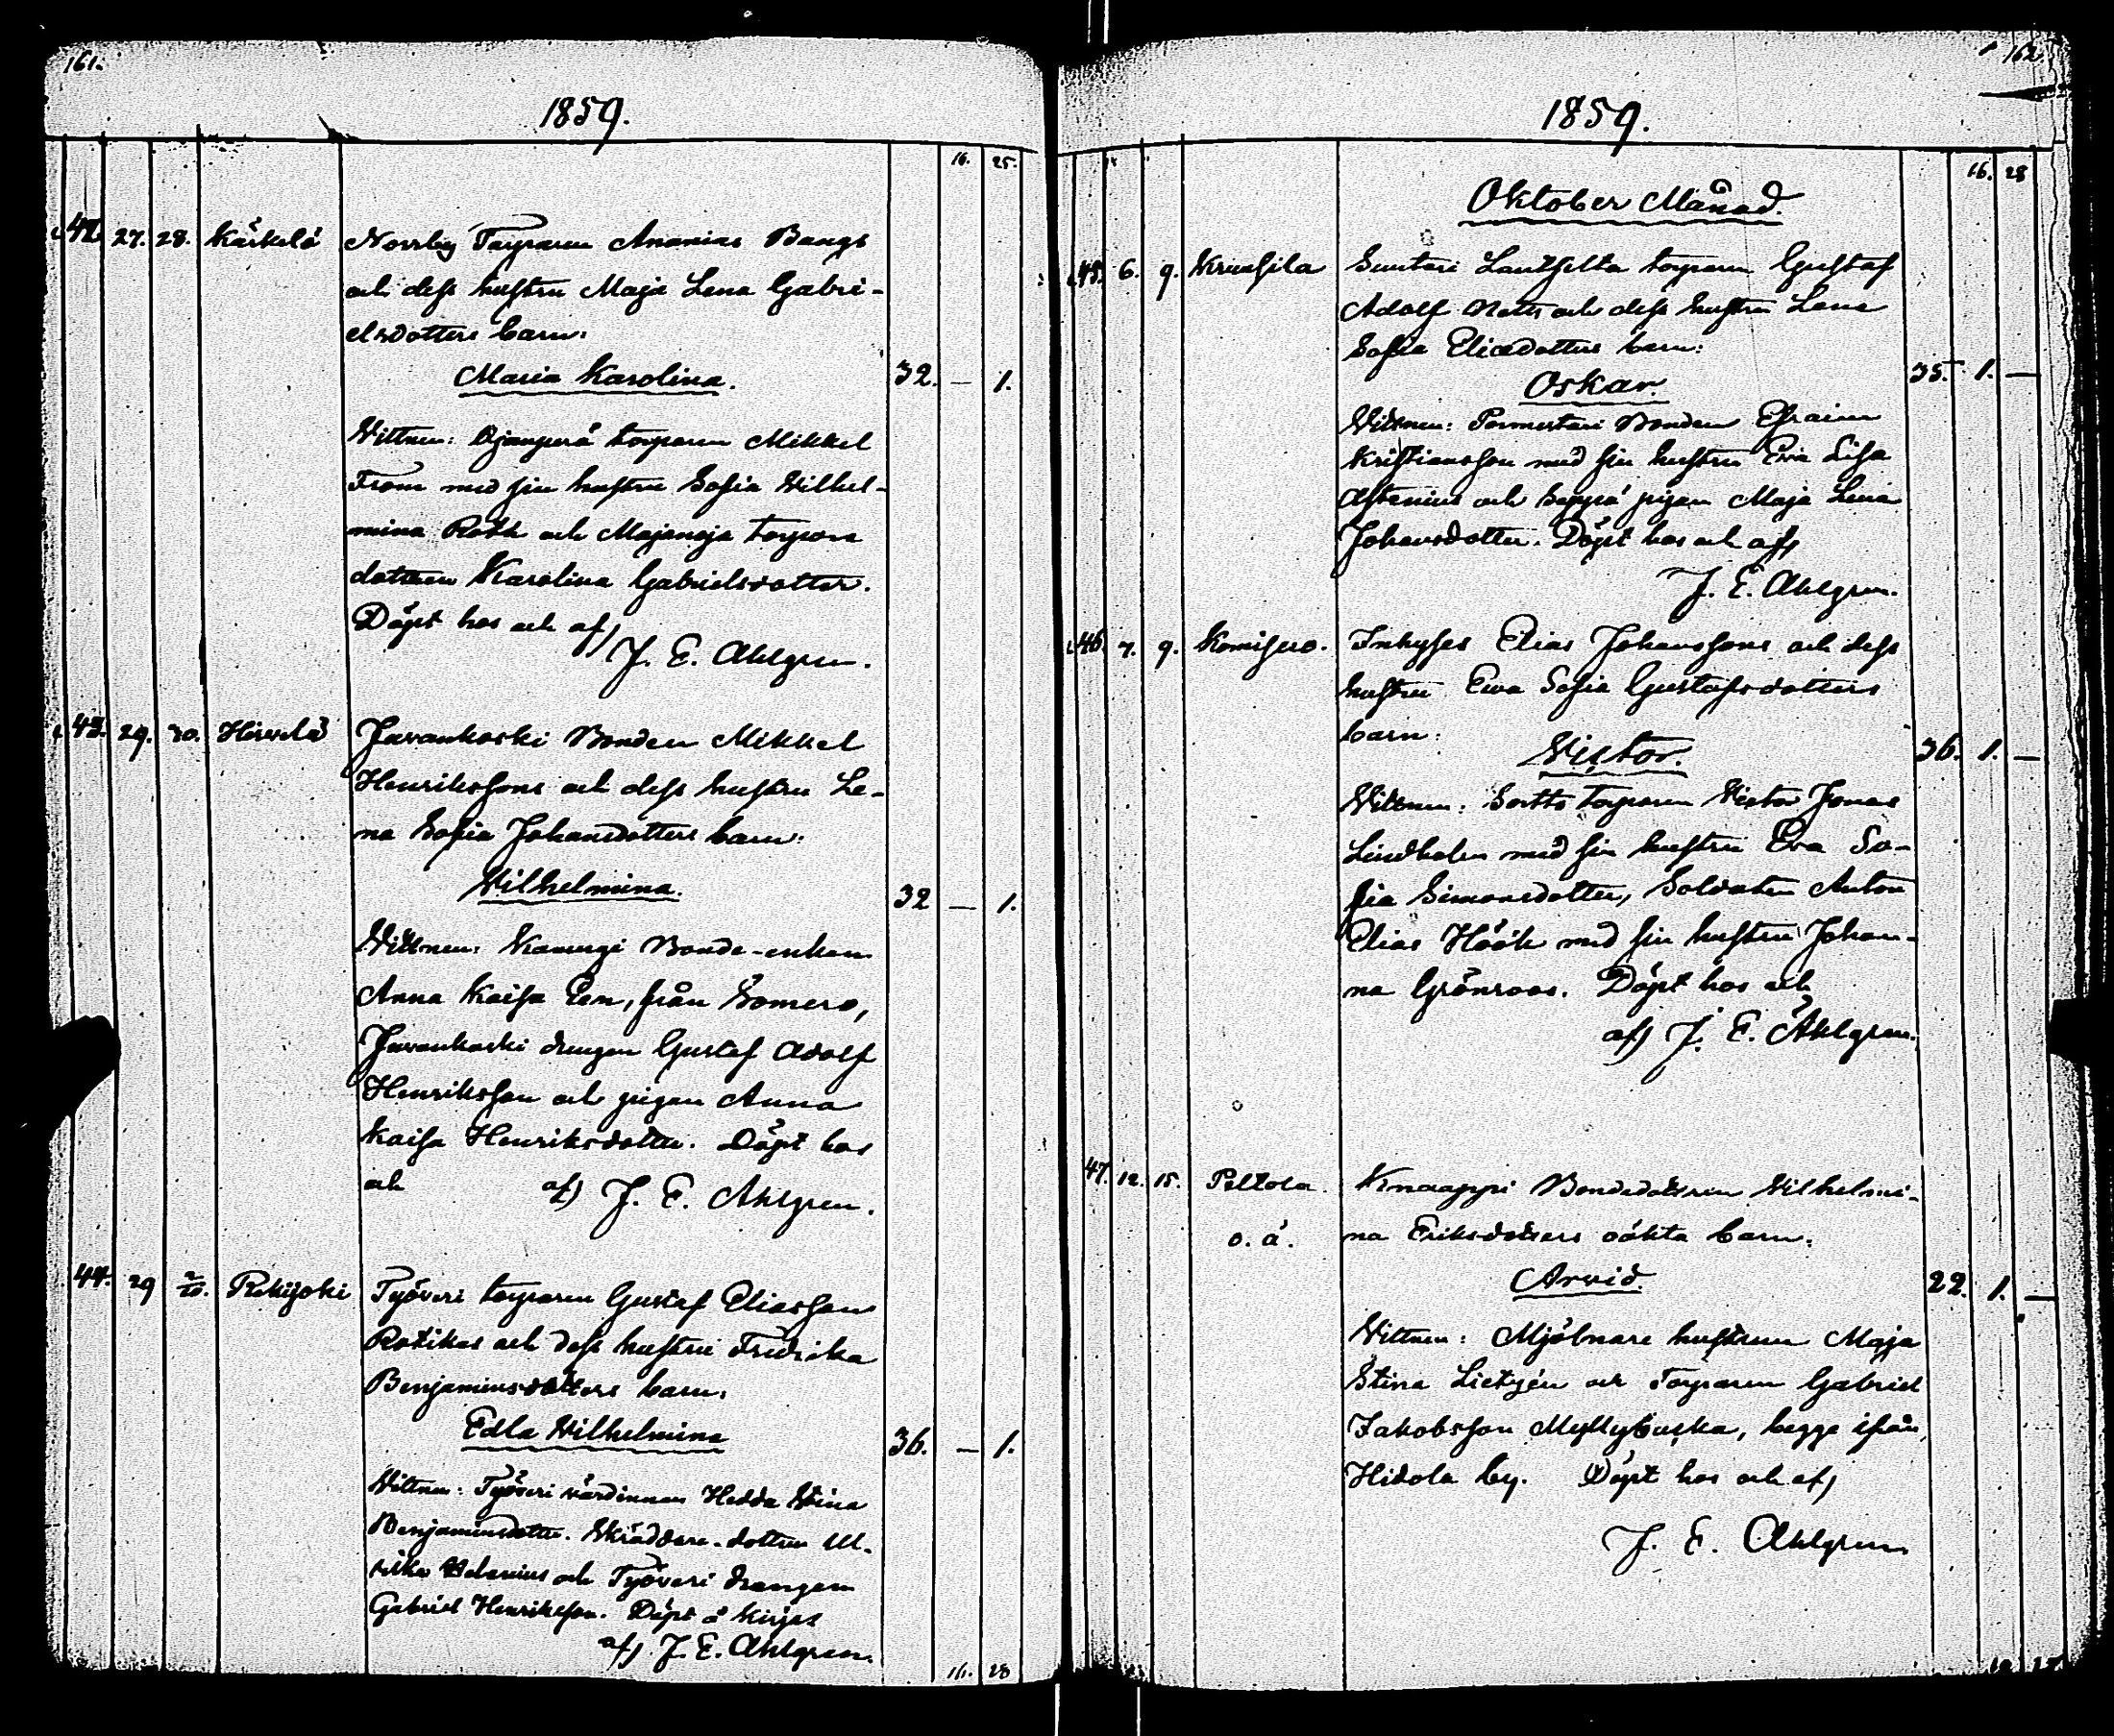 161.
1859.
16. 25.
42. 27. 28. Kärkelä Norrby Torparen Ananias Bangs
och dess hustru Maja Lena Gabri-
elsdotters barn:
Maria Karolina. 32. — 1.
Vittnen: Ojanperä torparen Mikkel
From med sin hustru Sofia Wilhel-
mina Roth och Majanoja torpare
dottren Karolina Gabrielsdotter.
Döpt hos och af)
J. E. Ahlgren.
43. 29. 30. Hirvelä Javankoski Bonden Mikkel
Henrikssons och dess hustru Le-
na Sofia Johansdotters barn:
Wilhelmina. 32 — 1.
Vittnen: Bonde-enkan
Anna Kaisa från Somero,
Javankoski drengen Gustaf Adolf
Henriksson och pigan Anna
Kaisa Henriksdotter. Döpt hos
och af) J. E. Ahlgren.
44. 29 2/10. Rekijoki Työveri torparen Gustaf Eliasson
Rotikas och dess hustru Fredrika
Benjaminsdotters barn:
Edla Wilhelmina 36. — 1.
Vittnen: Työveri värdinnan Hedda Stina
Benjaminsdotter. Skräddare-dottren Ul-
rika och Työveri drangen
Gabriel Henriksson. Döpt å Kirjas
af) J. E. Ahlgren.
16. 28
162.
1859.
16. 28
Oktober Månad.
45. 6. 9. Kruusila Suutari Lauthselta torparen Gustaf
Adolf och dess hustru Lena
Sofia Eliædotters barn:
Oskar. 35. 1. —
Vittnen: Bonden Efraim
Kristiansson med sin hustru Eva Lisa
och Seppä pigan Maja Lena
Johansdotter. Döpt hos och af)
J. E. Ahlgren.
46. 7. 9. Komisuo. Inhyses Elias Johanssons och dess
hustru Eva Sofia Gustafsdotters
barn:
Victor. 36. 1. —
Vittnen: Sortto Torparen Victor Jonas
Lindholm med sin hustru Eva So-
fia Simonsdotter, Soldaten Anton
Elias Höök med sin hustru Johan-
na Grönroos. Döpt hos och
af) J. E. Ahlgren.
47. 12. 15. Peltola. Knaappi Bondedottren Wilhelmi-
o. ä. na Eriksdotters oäkta barn:
Arvid. 22. 1. —
Vittnen: Mjölnare hustrun Maja
Stina Lietzén och Torparen Gabriel
Jakobsson Myllybuska, begge ifrån
Hidola by. Döpt hos och af)
J. E. Ahlgren